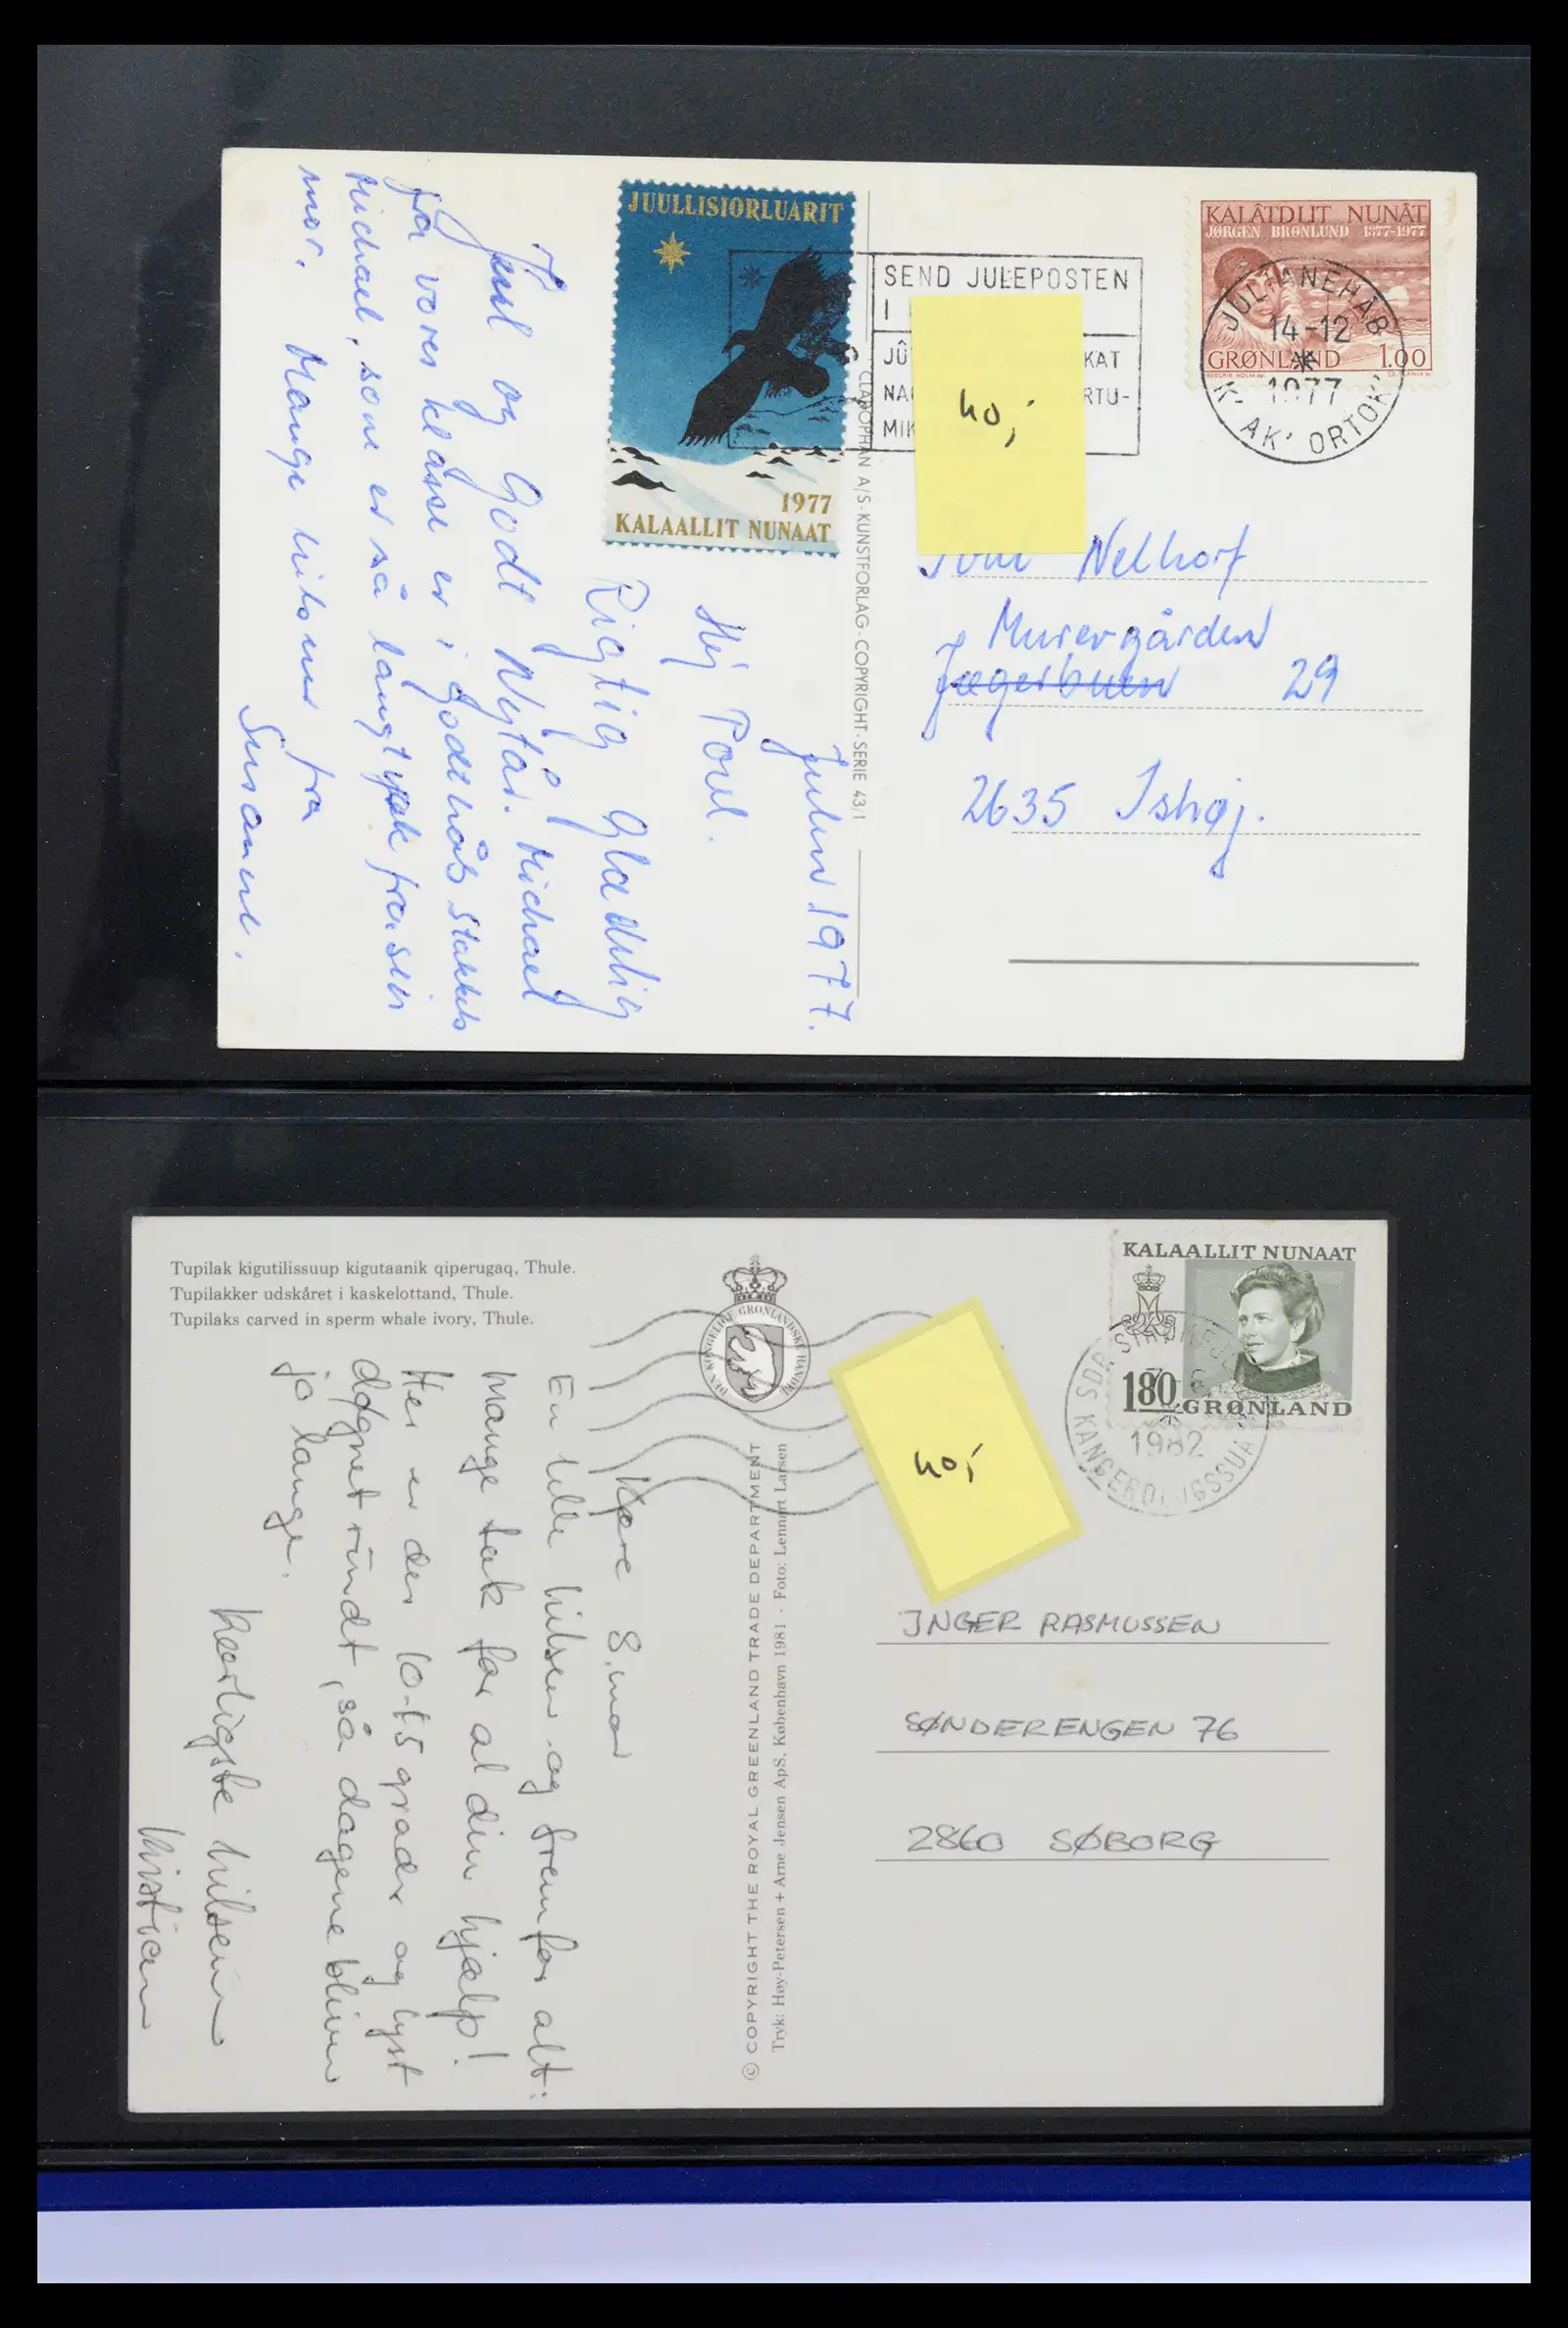 JUULLISIORLUARIT
1977
KALAALLIT NUNAAT
SEND JULEPOSTEN
I
JÛ KAT
NA RTU-
MIK
40,-
KALÂTDLIT NUNÂT
JØRGEN BRØNLUND 1877-1977
GRØNLAND 1.00
JULIANEHÅB
14-12
1977
K'AK'ORTOK
Julen 1977.
Hej Poul.
Rigtig Glædelig
Jul og Godt Nytår. Michael
fra vores klasse er i Godthåb stakkels
Michael, som er så langt væk fra sin
mor. Mange hilsner fra
Susanne.
CLAROPHAN A/S·KUNSTFORLAG·COPYRIGHT·SERIE 43/1
Poul Nelhof
Murergården
Jægerbuen 29
2635 Ishøj.
Tupilak kigutilissuup kigutaanik qiperugaq, Thule.
Tupilakker udskåret i kaskelottand, Thule.
Tupilaks carved in sperm whale ivory, Thule.
DEN KONGELIGE GRØNLANDSKE HANDEL
KALAALLIT NUNAAT
180
GRØNLAND
SDR STRØMFJORD
1982
KANGERDLUGSSUAQ
40,-
Kære S.mor
En lille hilsen og frem for alt:
mange tak for al din hjælp!
Her er der 10-15 grader og lyst
døgnet rundt, så dagene bliver
jo lange.
Kærligste hilsen
Kristian
© COPYRIGHT THE ROYAL GREENLAND TRADE DEPARTMENT
Tryk: Høy-Petersen + Arne Jensen ApS, København 1981 - Foto: Lennart Larsen
INGER RASMUSSEN
SØNDERENGEN 76
2860 SØBORG